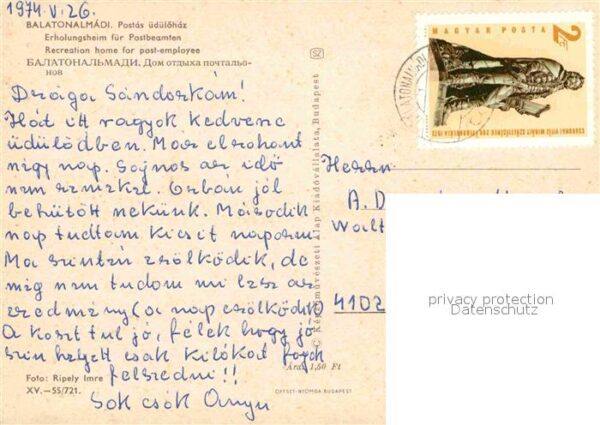 1974.V.26.
BALATONALMÁDI. Postás üdülőház
Erholungsheim für Postbeamten
Recreation home for post-employee
БАЛАТОНАЛЬМАДИ. Дом отдыха почтальо-
нов
Drága Sándorkám!
Hát itt vagyok kedvenc
üdülődben. Már elrohant
négy nap. Sajnos az idő
nem szmizkre. Orbán jól
behűtött nekünk. Második
nap tudtam kicsit naposni
Ma szintén zsölködik, de
még nem tudom mi lesz az
eredmény (a nap csölködik)
A koszt tul jó, félek hogy jó
szin helyett csak kilókat fogok
felszedni!!
Sok csók Anyu
Foto: Ripely Imre
XV.—55/721.
C Képzőművészeti Alap Kiadóvállalata, Budapest
Ára: 1,50 Ft
OFFSET-NYOMDA BUDAPEST
MAGYAR POSTA
2 Ft
CSOKONAI VITÉZ MIHÁLY SZÜLETÉSÉNEK 200. ÉVFORDULÓJA 1973
Herrn
A. D
Walt
4102
privacy protection
Datenschutz